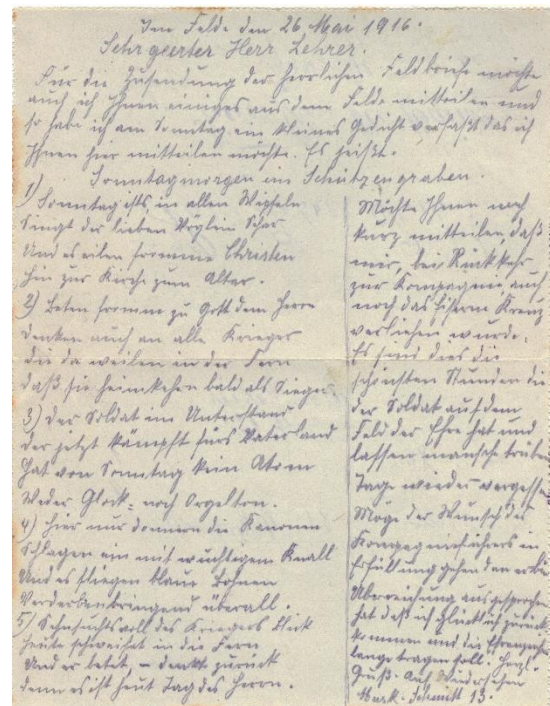 Im Felde den 26. Mai 1916.
Sehrgeerter Herr Lehrer.
Für die Zusendung der herrlichen Feldbriefe möchte
auch ich Ihnen einiges aus dem Felde mitteilen und
so habe ich am Sonntag ein kleines Gedicht verfaßt das ich
Ihnen hier mitteilen möchte. Es heißt.
Sonntagmorgen im Schützengraben.
1) Sonntag ists, in allen Wipfeln
Singt der lieben Vöglein Schar
Und es eilen fromme Christen
hin zur Kirche zum Altar.
2) Beten fromm zu Gott dem Herrn
Denken auch an alle Krieger
die da weilen in der Fern
daß sie heimkehren bald als Sieger.
3) Der Soldat im Unterstand
der jetzt kämpft fürs Vaterland
hat von Sonntag kein
Weder Glock- noch Orgelton.
4) Hier nur donnern die Kanonen
Schlagen ein mit wuchtigem Knall
Und es fliegen blaue Bohnen
Verderbenbringend überall.
5) Sehnsuchtsvoll des Kriegers Blick
heute schweifet in die Fern
Und er betet, – denkt zurück
denn es ist heut Tag des Herrn.
Möchte Ihnen noch
kurz mitteilen, daß
mir, bei Rückkehr
zur Kompagnie, auch
noch das Eiserne Kreuz
verliehen wurde.
Es sind dies die
schönsten Stunden die
der Soldat auf dem
Feld der Ehre hat und
lassen manche trübe
Tage wieder vergessen
Möge der Wunsch des
Kompagnieführers in
Erfüllung gehen den er bei
Überreichung ausgesprochen
hat daß ich glücklich zurück
kommen und die
lange tragen soll. Herzl.
Gruß. Auf Wiedersehen
Schmitt 13.